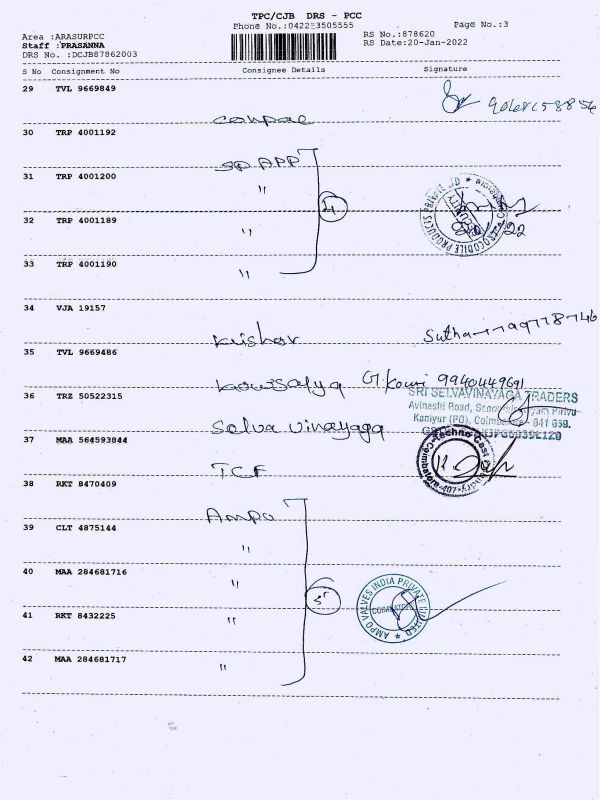 TPC/CJB DRS - PCC
Phone No.:0422-3505555
Page No.:3
Area :ARASURPCC
RS No.:878620
Staff :PRASANNA
RS Date:20-Jan-2022
DRS No. :DCJB87862003
S No Consignment No Consignee Details Signature
29 TVL 9669849
30 TRP 4001192
31 TRP 4001200
"
32 TRP 4001189
"
33 TRP 4001190
"
34 VJA 19157
Kishor
35 TVL 9669486
Kowsalya G. Kowri 9940449691
36 TRZ 50522315
SRI SELVAVINAYAGA TRADERS
Avinashi Road,
Kaniyur (PO), Coimbatore - 641 659.
Selva Vinayaga
37 MAA 564593844
TCF
38 RKT 8470409
Ampo
39 CLT 4875144
"
40 MAA 284681716
"
5
AMPO VALVES INDIA PRIVATE LIMITED
41 RKT 8432225
"
42 MAA 284681717
"